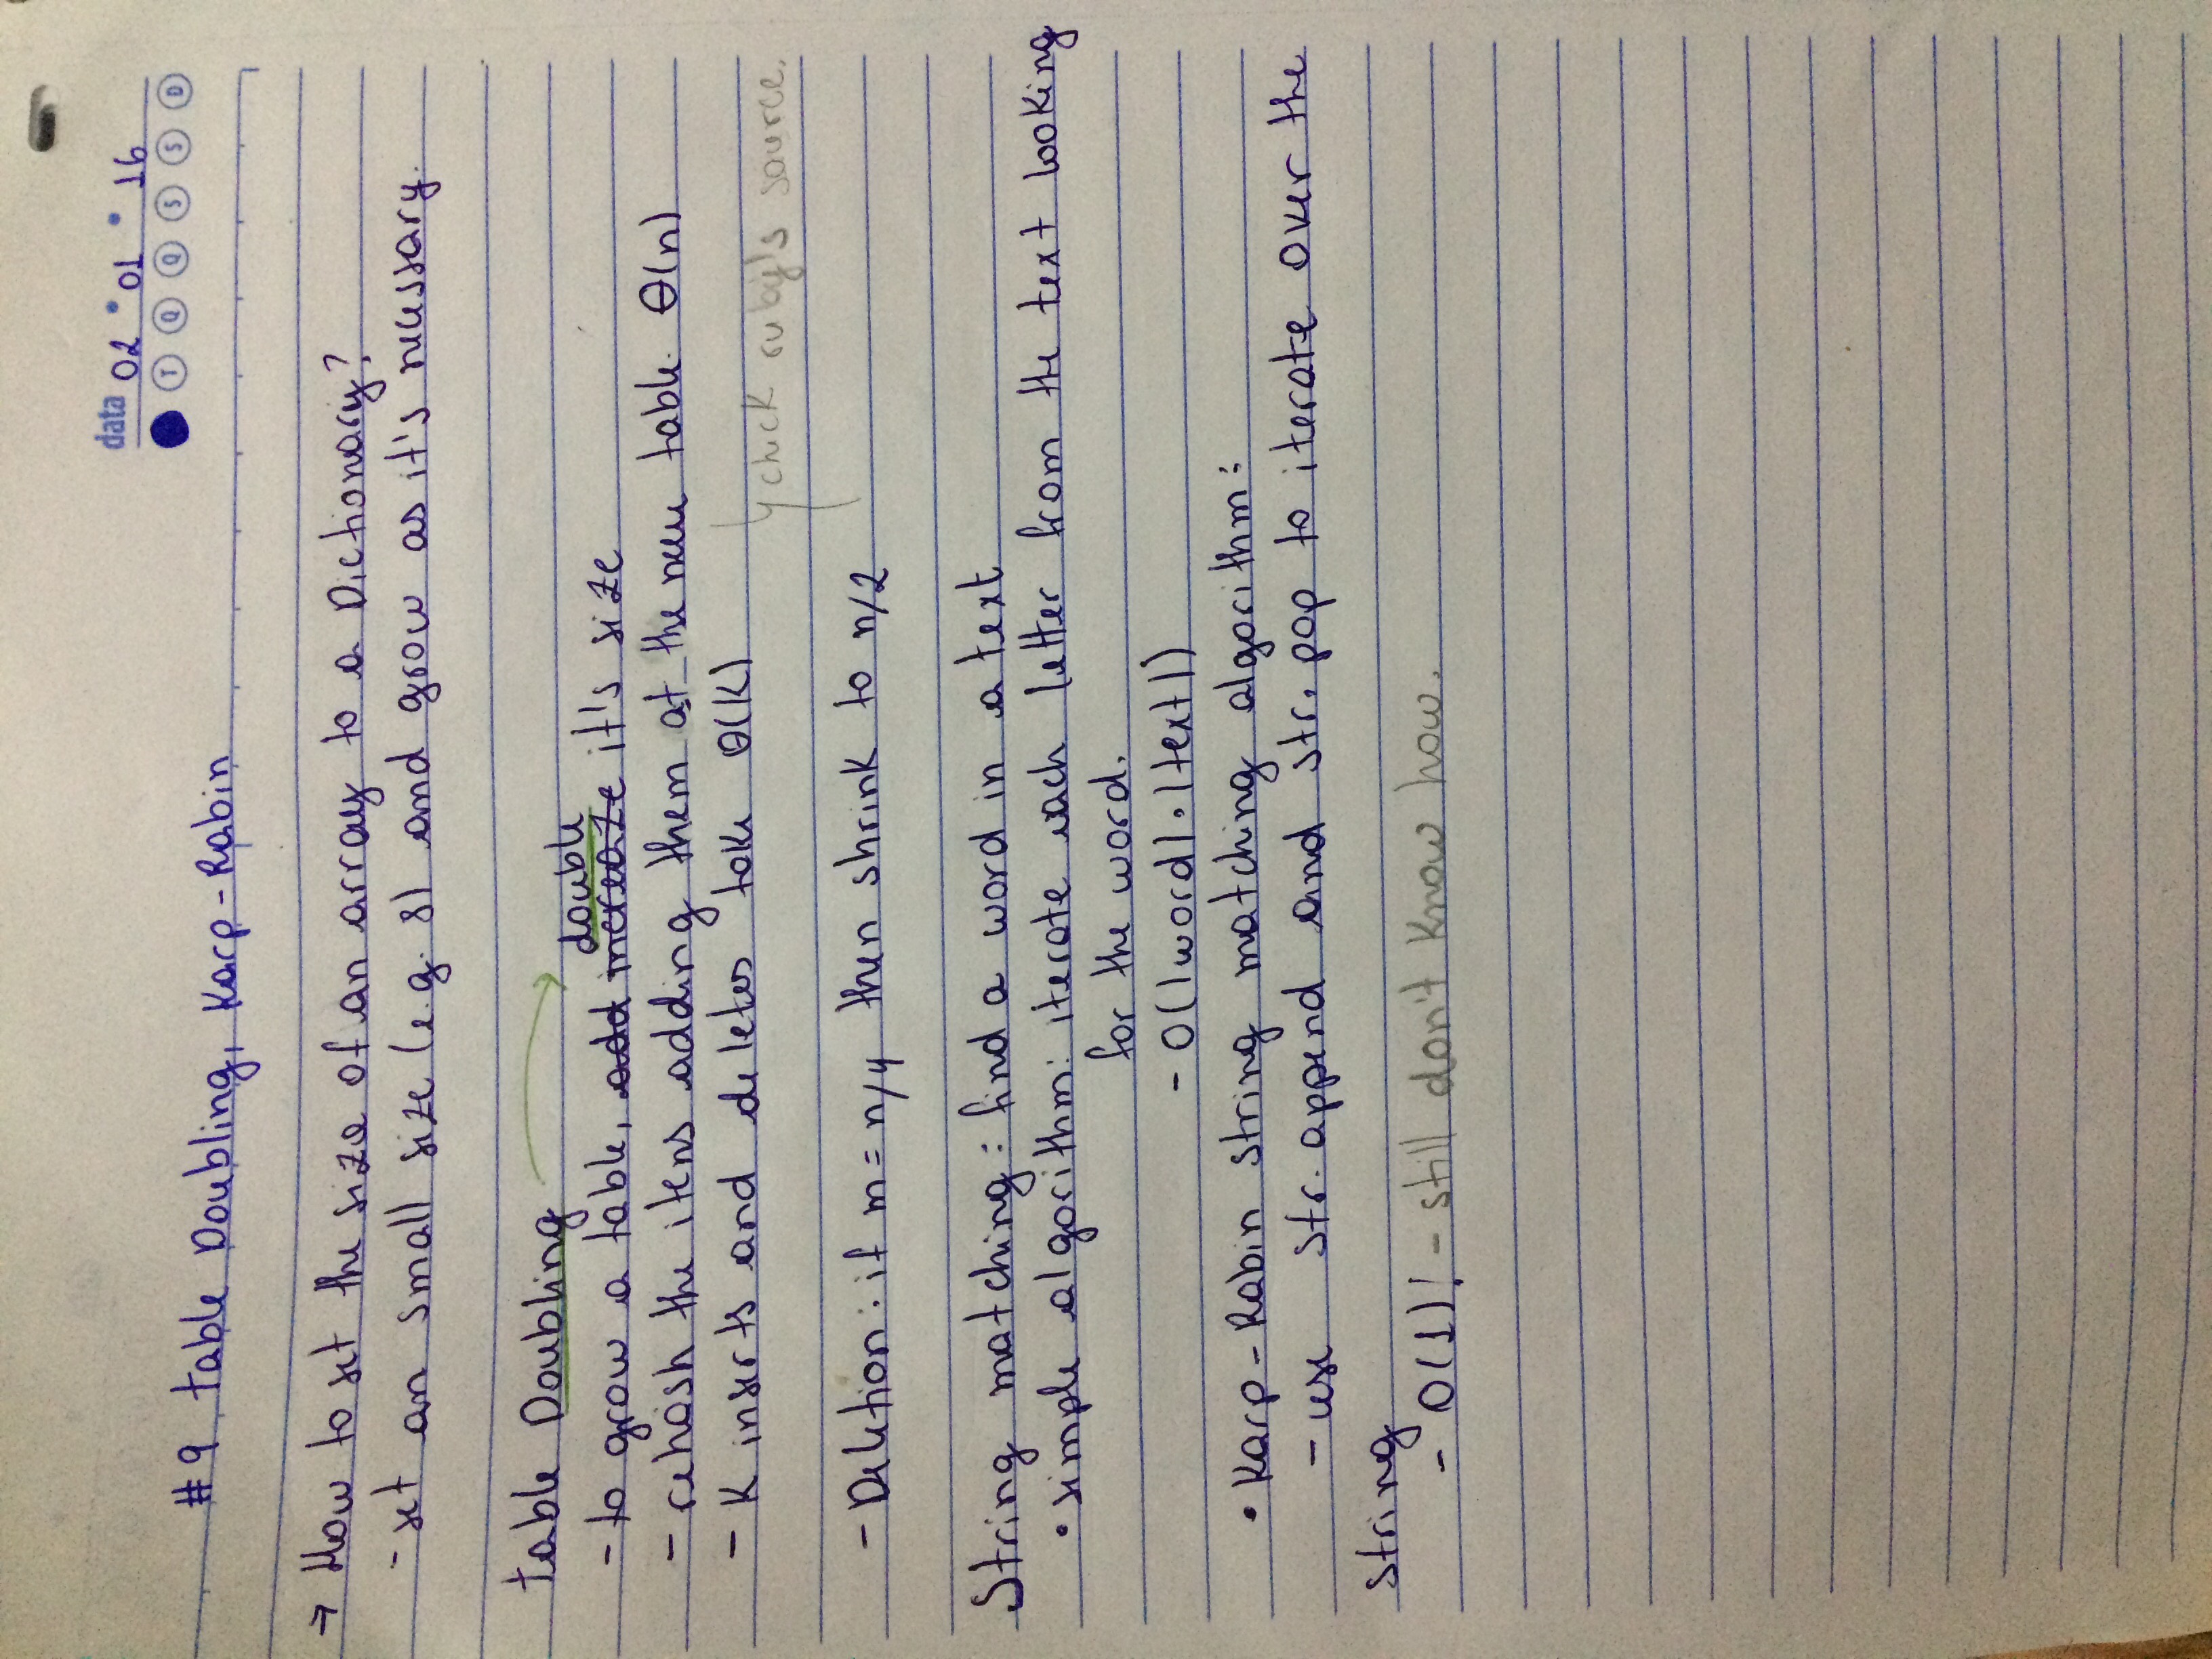 data 02 • 01 • 16
T Q Q S S D
#9 Table Doubling, Karp-Rabin
→ How to set the size of an array to a Dictionary?
- set an small size (e.g. 8) and grow as it's necessary.
Table Doubling
double
- to grow a table, add increaze it's size
- rehash the itens adding them at the new table. Θ(n)
- K inserts and deletes take Θ(K)
↳ check ruby's source.
- Deletion: if m = n/4 then shrink to n/2
String matching: find a word in a text
• simple algorithm: iterate each letter from the text looking
for the word.
- O(|word|•|text|)
• Karp-Rabin string matching algorithm:
- use str.append and str.pop to iterate over the
string
- O(1)! - still don't know how.